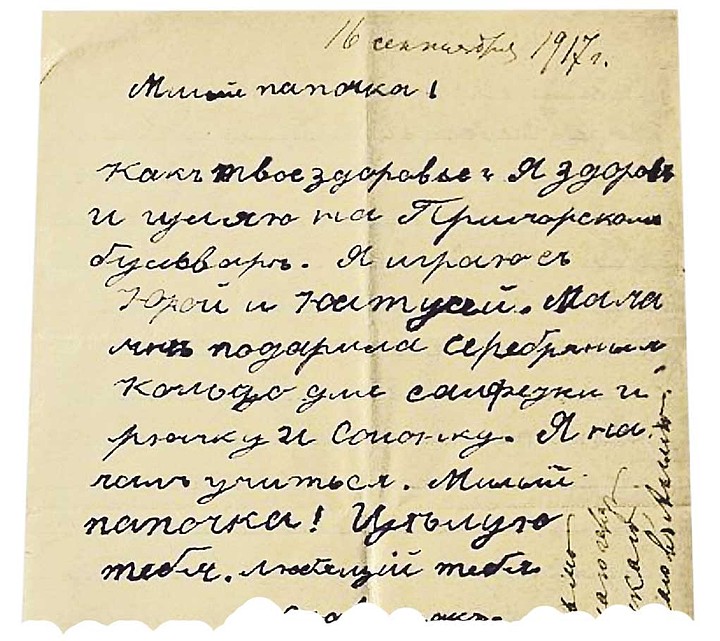 16 сентября 1917 г.
Милый папочка!
Какъ твое здоровье? Я здоровъ
и гуляю на Приморскомъ
бульваръ. Я играю съ
Юрой и Катусей. Мама
мнъ подарила серебряный
кольцо для салфетки и
рюмку и солонку. Я на-
чалъ учиться. Милый
папочка! Цълую
тебя. любящій тебя